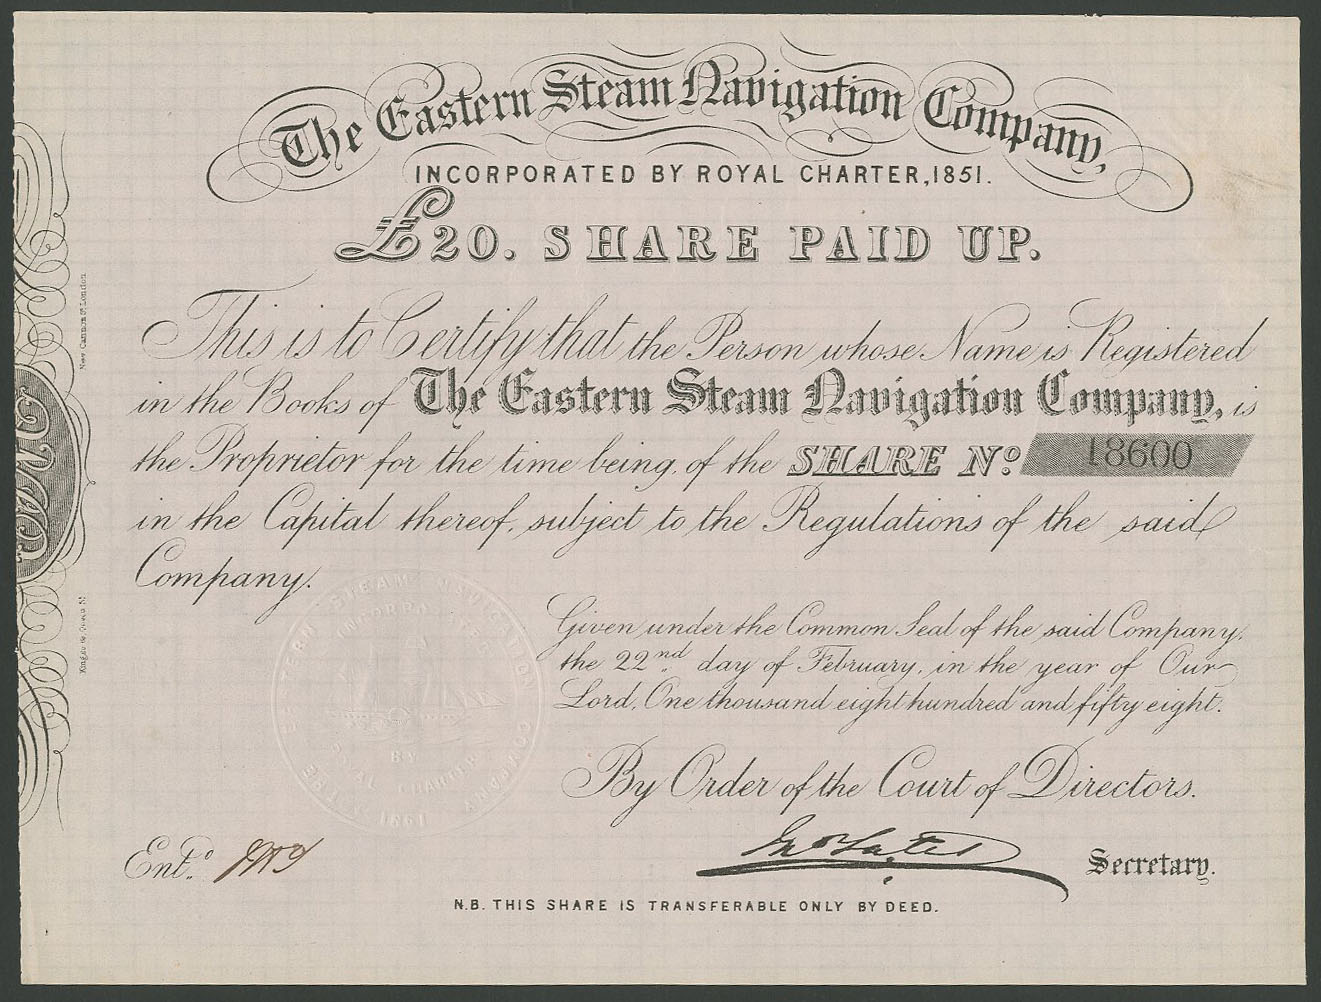 The Eastern Steam Navigation Company,
INCORPORATED BY ROYAL CHARTER, 1851.
£20. SHARE PAID UP.
This is to Certify that the Person whose Name is Registered
in the Books of The Eastern Steam Navigation Company, is
the Proprietor for the time being, of the SHARE No. 18600
in the Capital thereof, subject to the Regulations of the said
Company.
Given under the Common Seal of the said Company,
the 22nd day of February, in the year of Our
Lord, One thousand eight hundred and fifty eight.
By Order of the Court of Directors.
Jno Yates Secretary.
Entd.
N.B. THIS SHARE IS TRANSFERABLE ONLY BY DEED.
EASTERN STEAM NAVIGATION COMPANY
INCORPORATED
BY
ROYAL CHARTER
New Cannon St. London